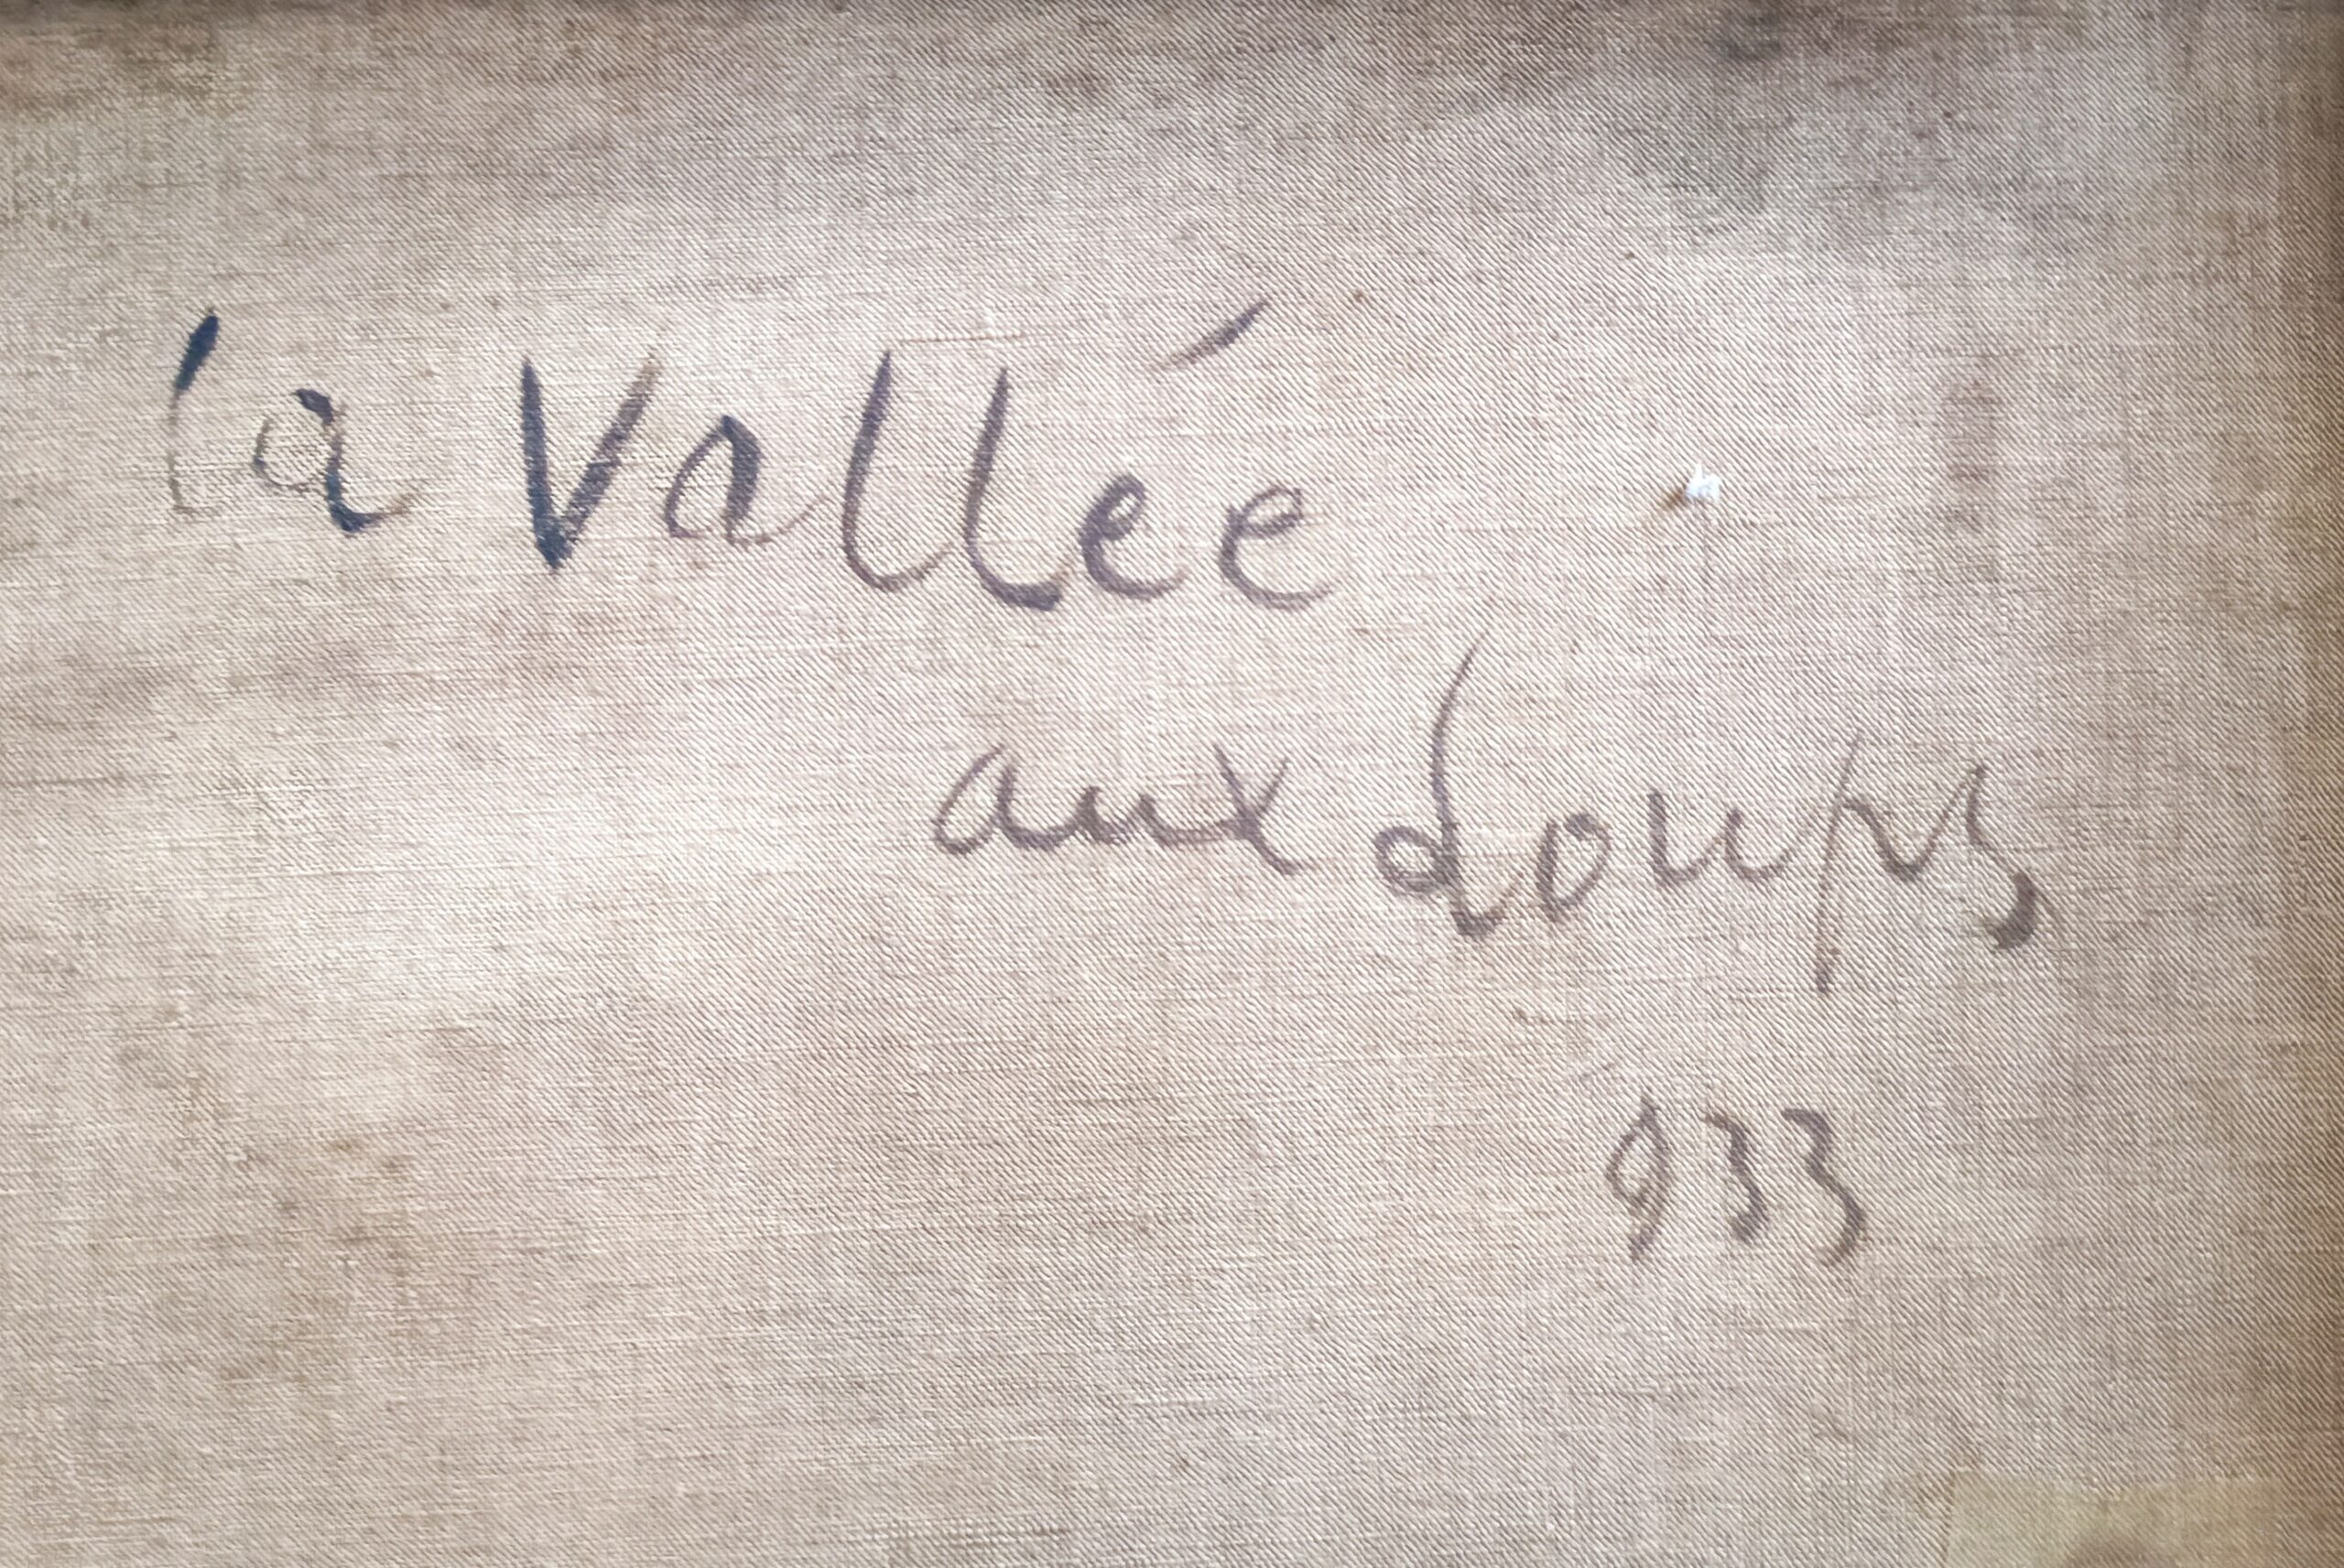 la Vallée
aux Loups
933